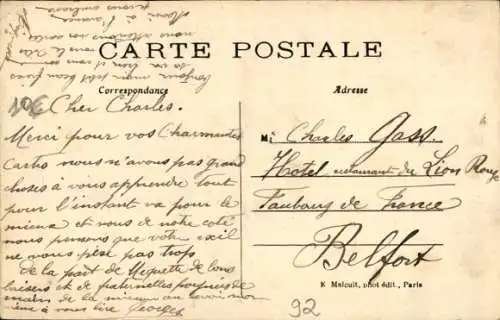 CARTE POSTALE
Correspondance
Adresse
10€
Cher Charles.
Merci pour vos Charmantes
Cartes nous n'avons pas grand
choses à vous apprendre tout
pour l'instant va pour le
mieux et nous de notre coté
nous pensons que votre exil
ne vous pèse pas trop
de la part de Miquette de bons
baisers et de fraternelles poignées de
mains de la mienne au revoir mon
même à vous lire Georges
Mr Charles Gass
Hotel restaurant du Lion Rouge
Faubourg de France
Belfort
E Malcuit, phot édit., Paris
92